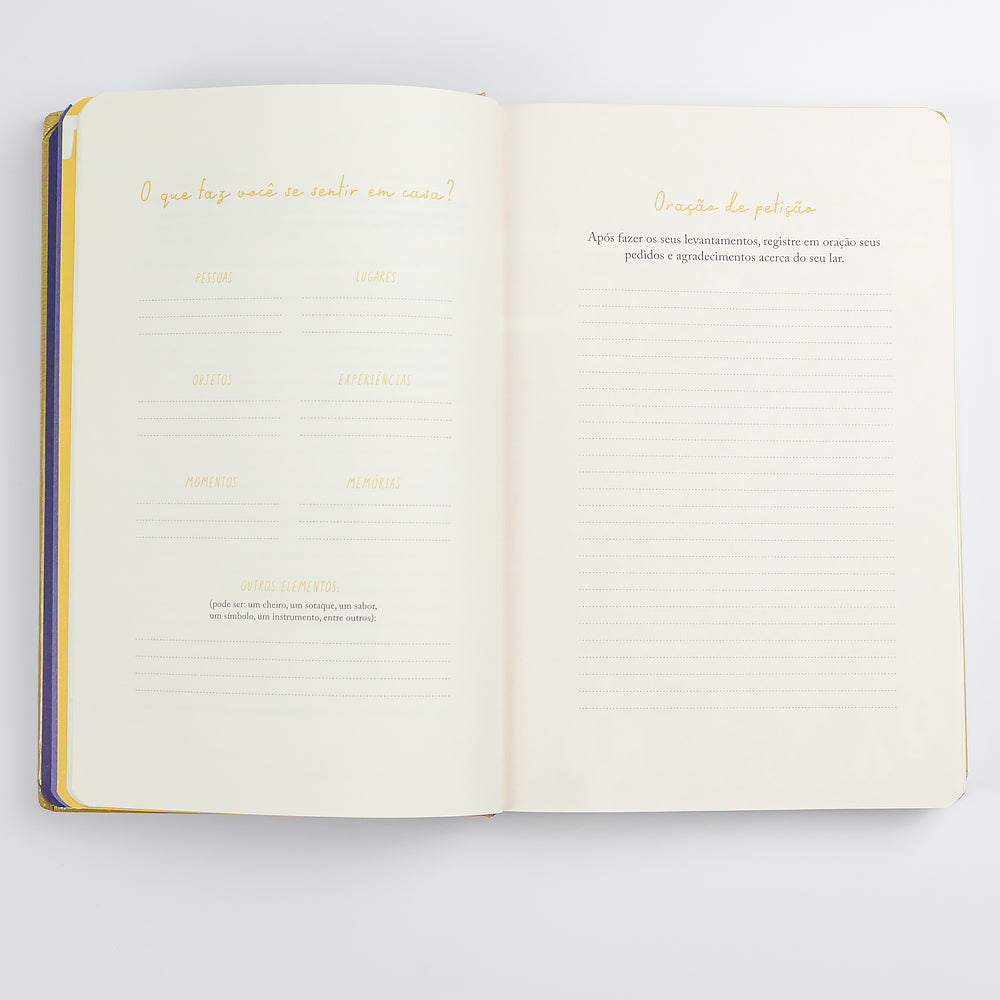 O que faz você se sentir em casa?
PESSOAS
LUGARES
OBJETOS
EXPERIÊNCIAS
MOMENTOS
MEMÓRIAS
OUTROS ELEMENTOS:
(pode ser: um cheiro, um sotaque, um sabor,
um símbolo, um instrumento, entre outros):
Oração de petição
Após fazer os seus levantamentos, registre em oração seus
pedidos e agradecimentos acerca do seu lar.